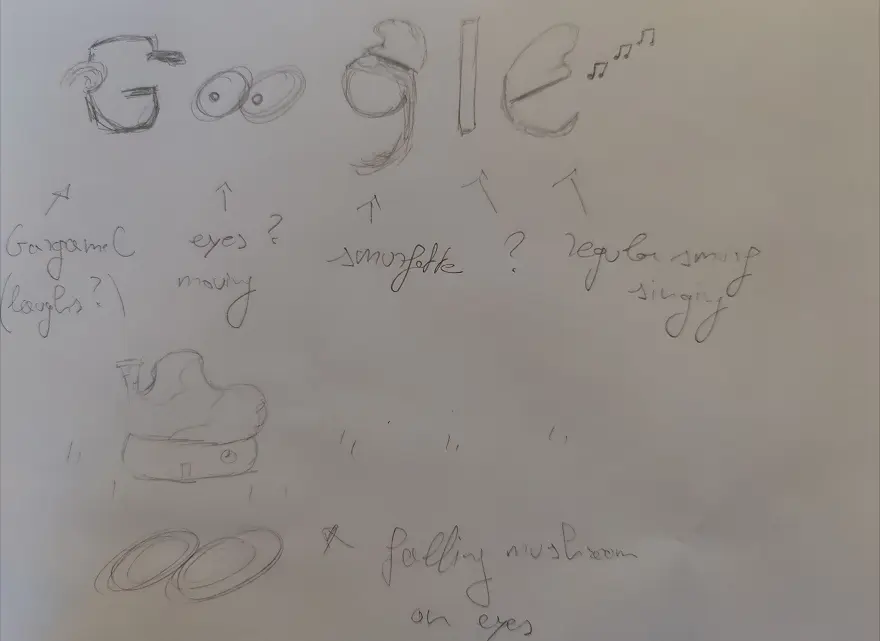 Google
Gargamel eyes? smurfette ? regular smurf
(laughs?) moving singing
falling mushroom
on eyes